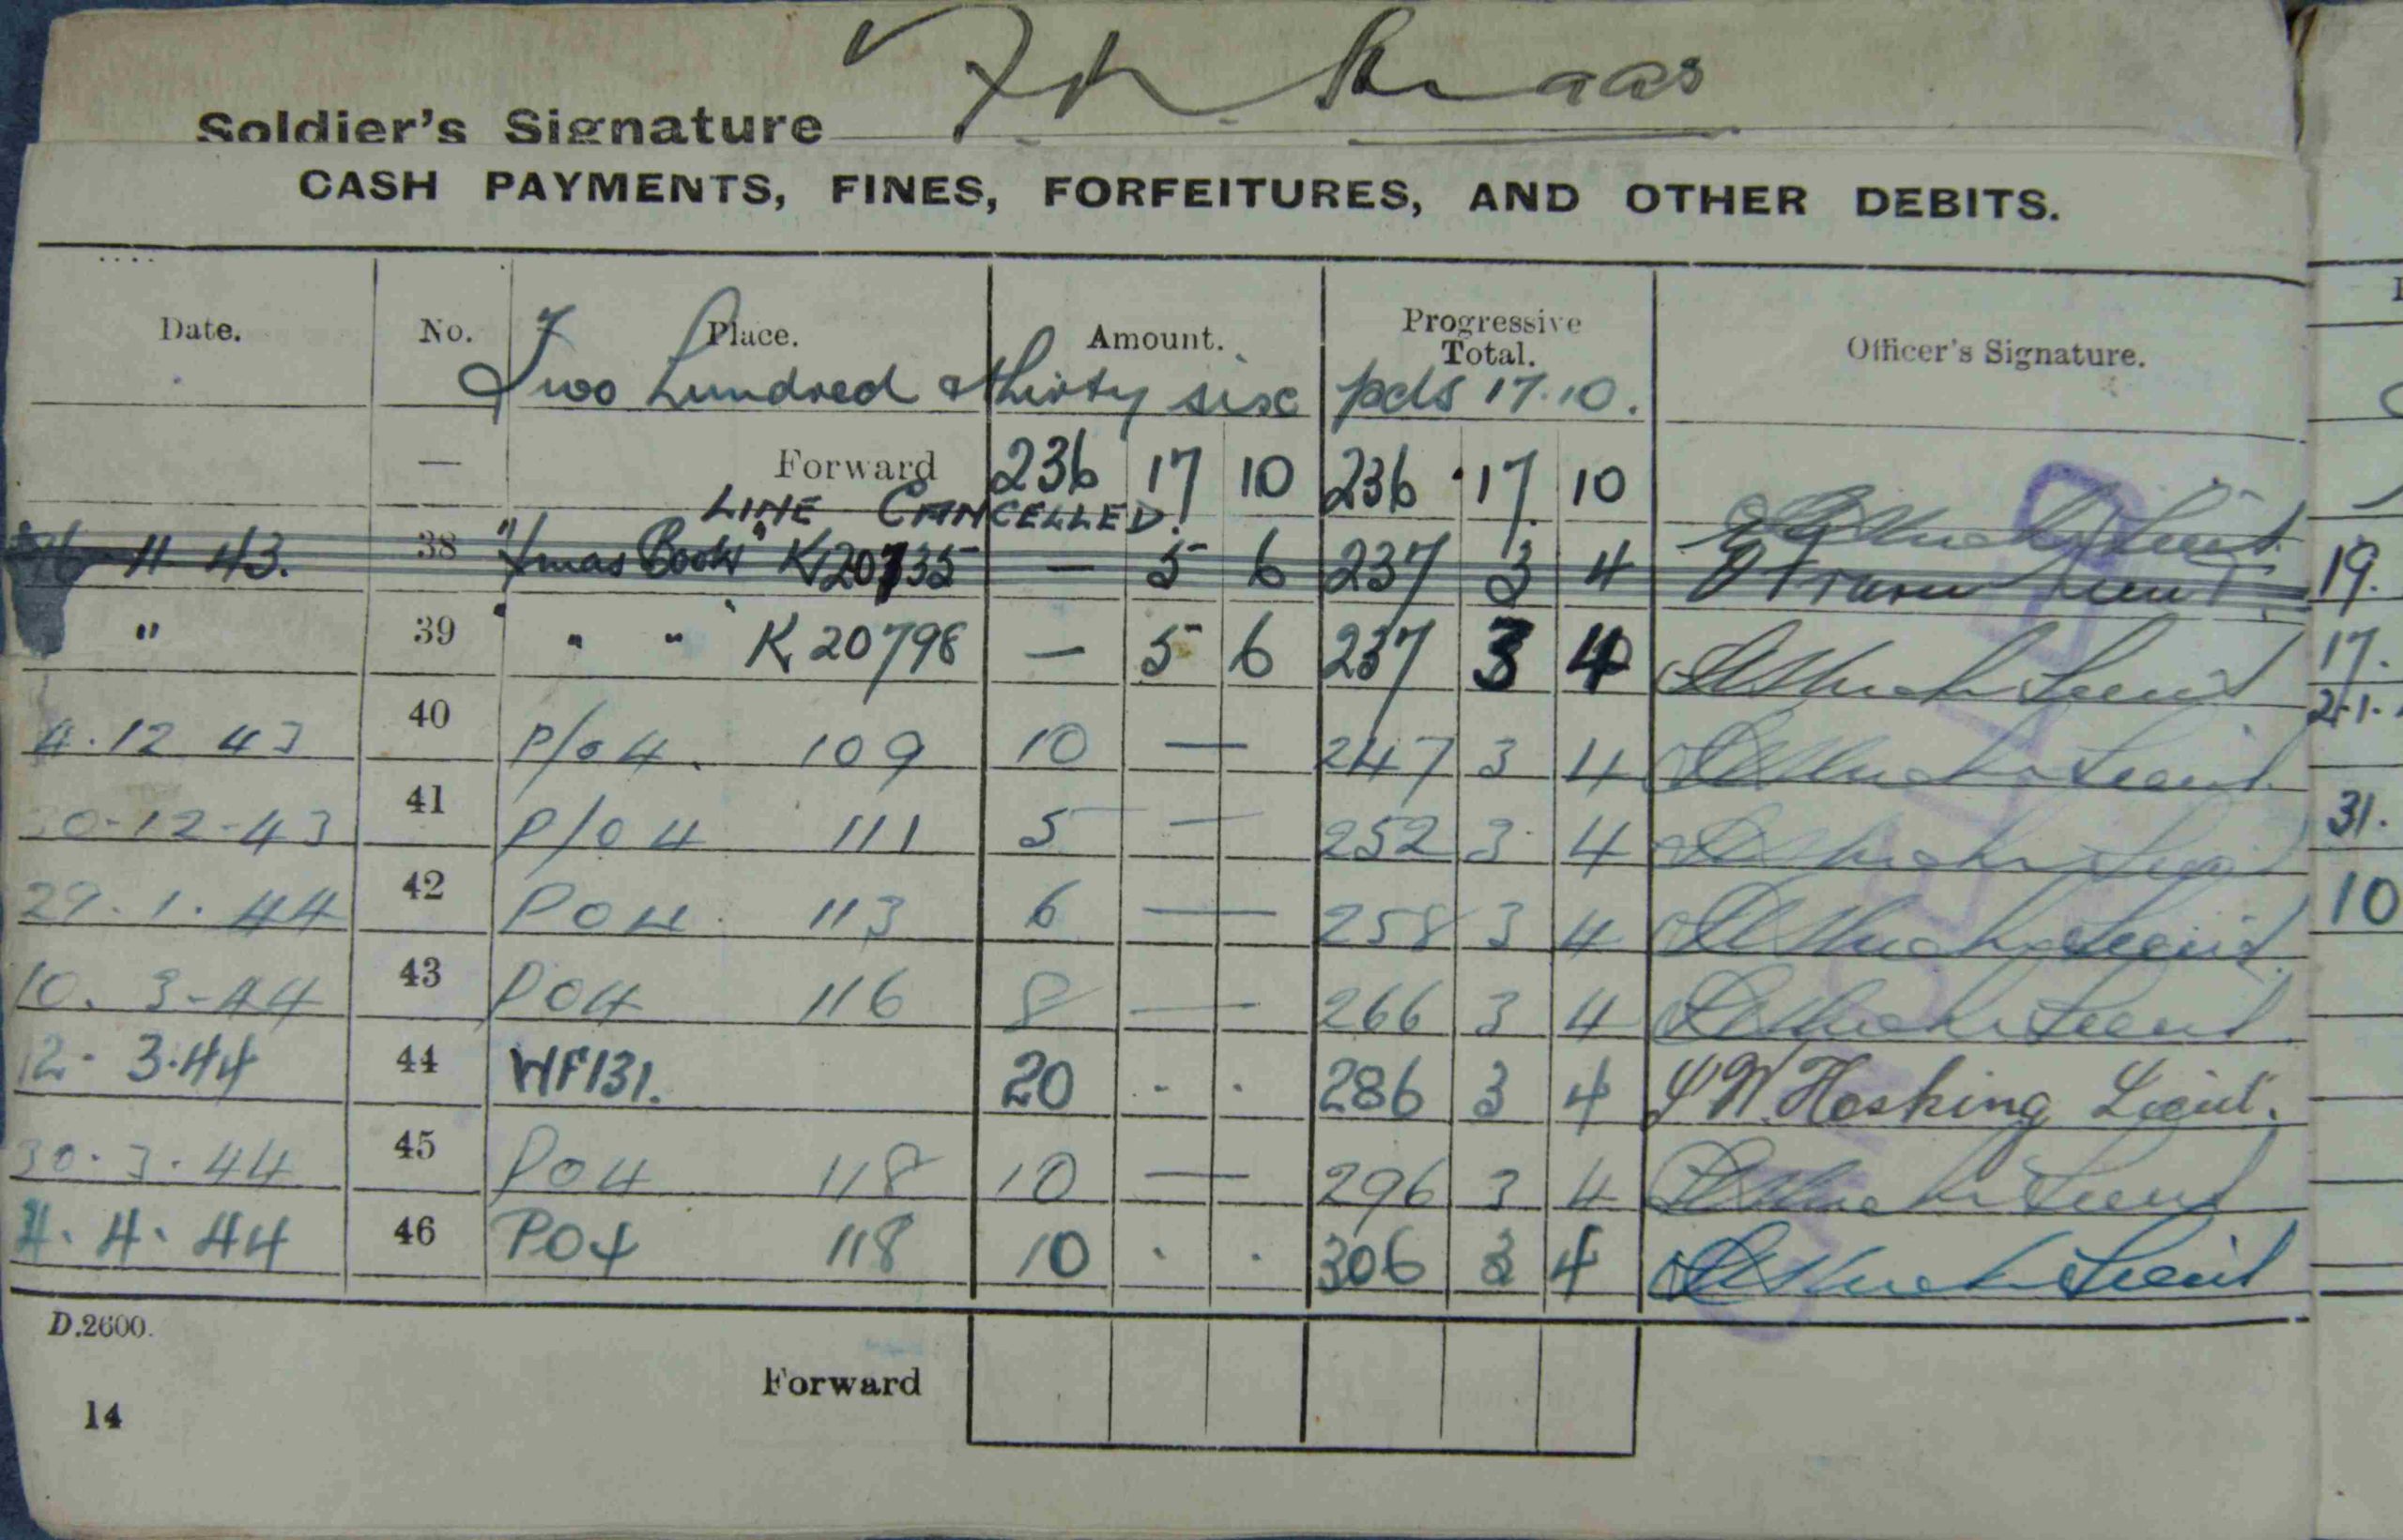 Soldier's Signature
CASH PAYMENTS, FINES, FORFEITURES, AND OTHER DEBITS.
Date. No. Place. Amount. Progressive Total. Officer's Signature.
Two hundred & thirty six pds 17.10.
— Forward 236 17 10 236 17 10
LINE CANCELLED.
11 43. 38 "Xmas Book" K20735 — 5 6 237 3 4
" 39 " " K20798 — 5 6 237 3 4
4.12 43 40 P/o 4. 109 10 — 247 3 4
0-12-43 41 P/o 4 111 5 — 252 3 4
29.1.44 42 PO4. 113 6 — 258 3 4
10. 3-44 43 PO4 116 8 — 266 3 4
12. 3.44 44 WF131. 20 . . 286 3 4 Hosking Lieut.
30.3.44 45 PO4 118 10 — 296 3 4
4. 4. 44 46 PO4 118 10 . . 306 3 4
D.2600.
Forward
14
19.
17.
21.
31.
10